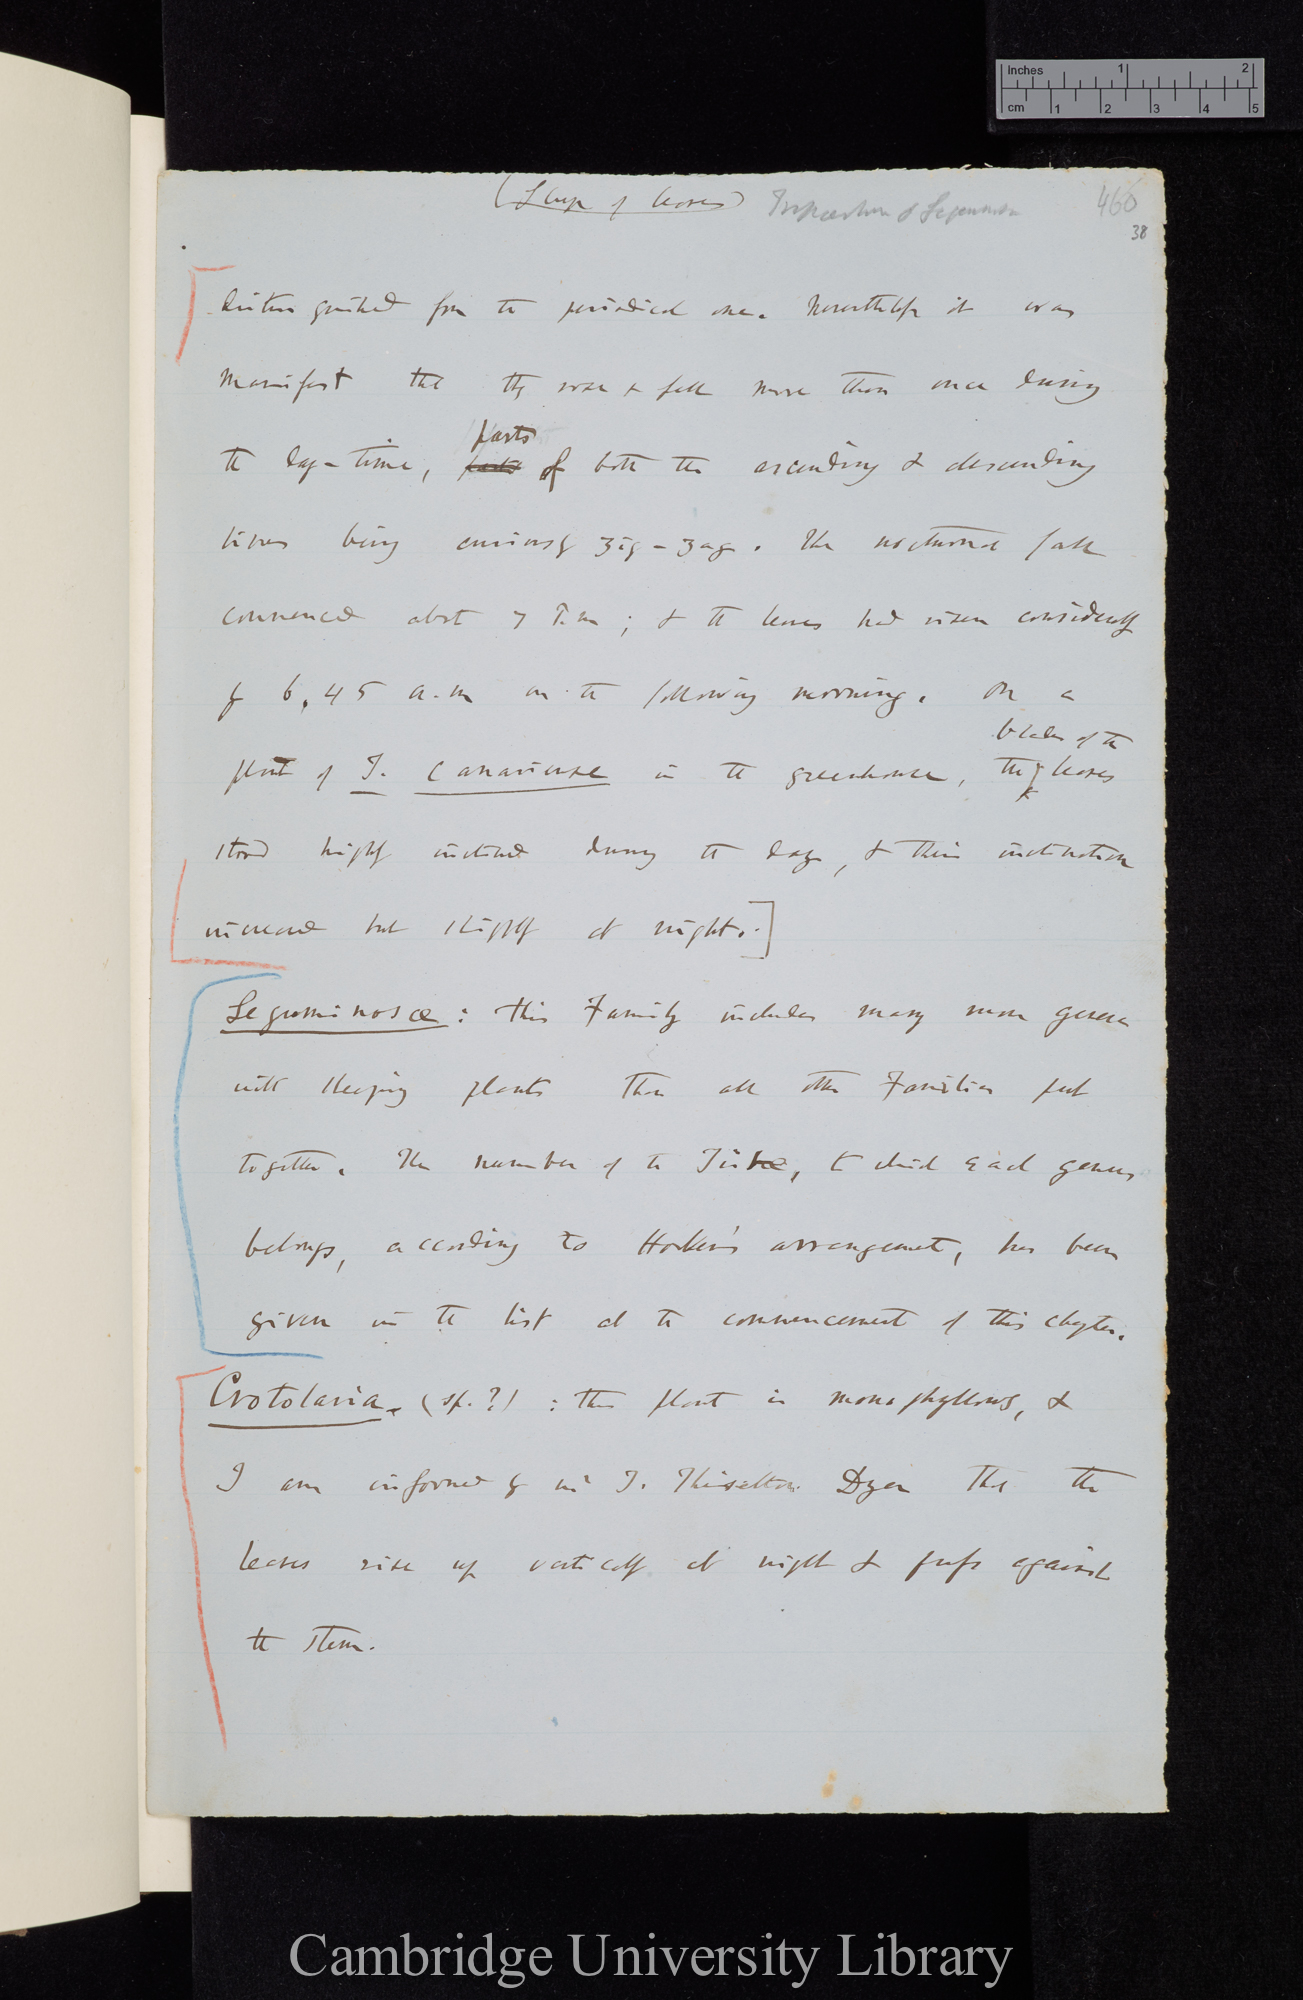 Inches 1 2
cm 1 2 3 4 5
(Sleep of leaves) Tropæolum & Leguminosæ 460
38
distinguished from the periodical one. Nevertheless it was
manifest that they rose & fell more than once during
the day-time, parts of both the ascending & descending
lines being curiously zig-zag. The nocturnal fall
commenced about 7 P.m; & the leaves had risen considerably
by 6,45 a.m on the following morning. On a
blades of the
plant of T. canariense in the greenhouse, the leaves
stood highly inclined during the day, & their inclination
increased but slightly at night.]
Leguminosæ: this Family includes many more genera
with sleeping plants than all other Families put
together. The number of the Tribe, to which each genus
belongs, according to Hooker's arrangement, has been
given in the list at the commencement of this chapter.
Crotolaria. (sp.?) : this plant is monophyllous, &
I am informed by Mr T. Thiselton Dyer that the
leaves rise up vertically at night & press against
the stem.
Cambridge University Library